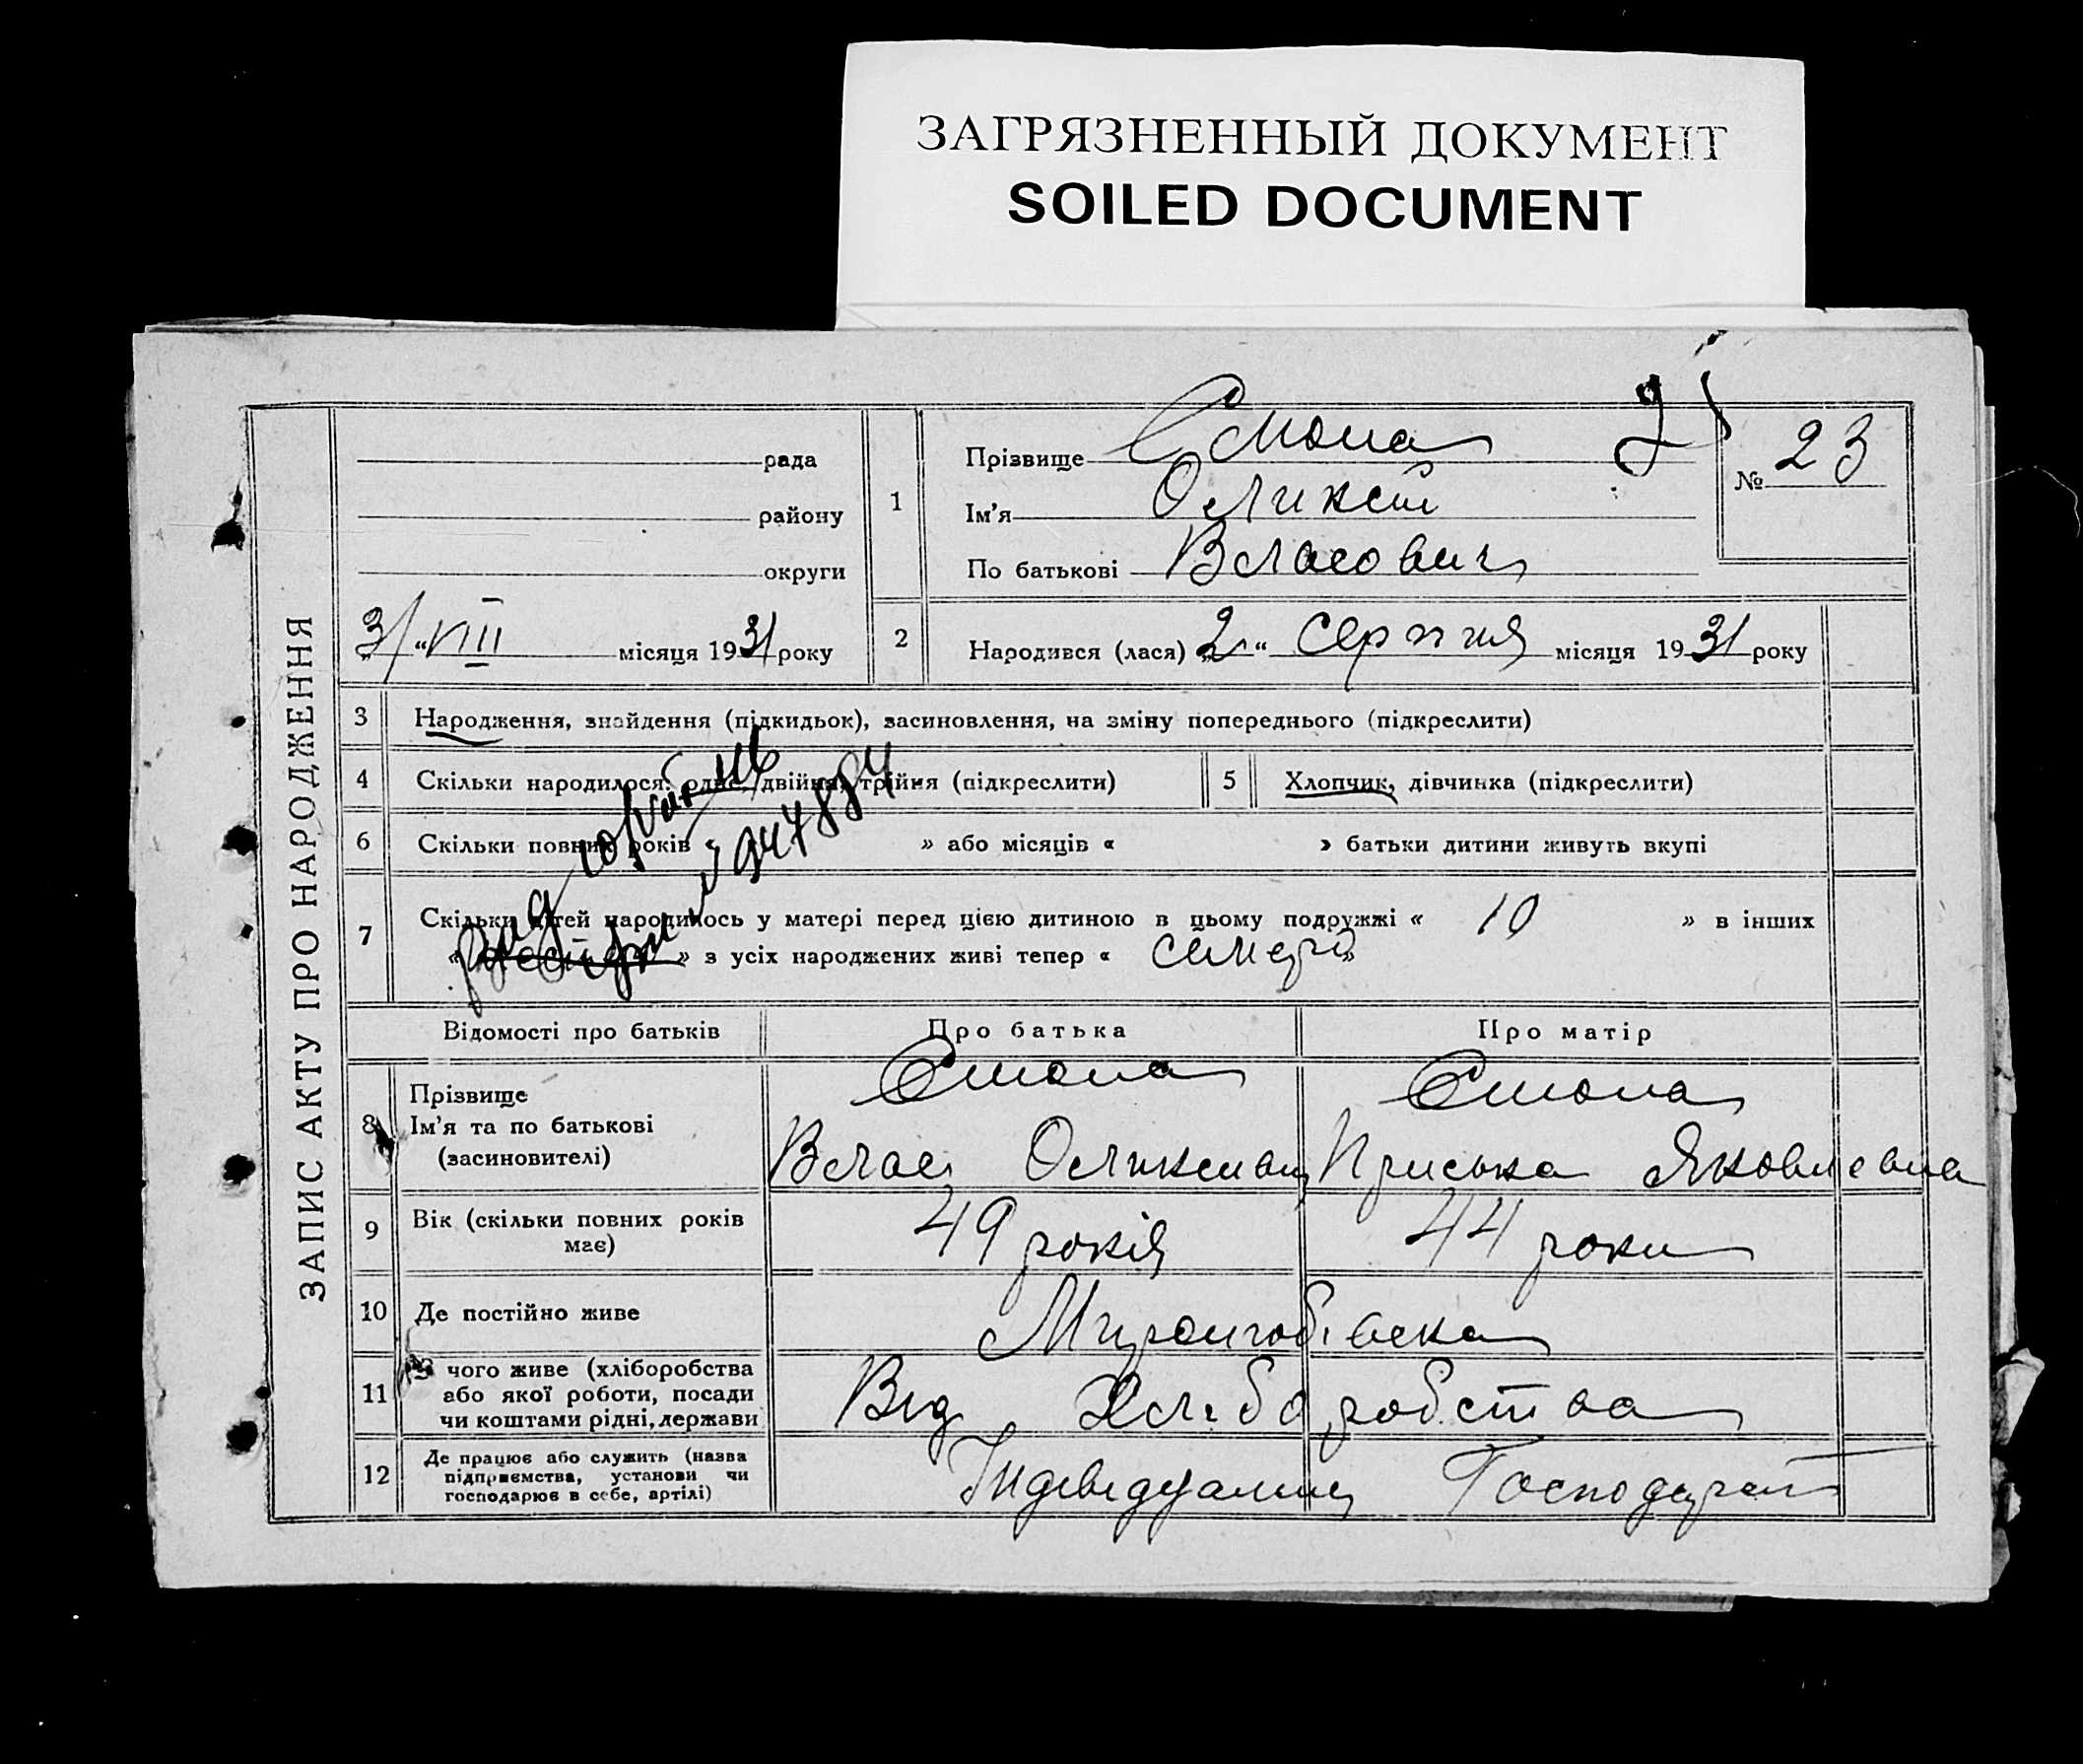 ЗАГРЯЗНЕННЫЙ ДОКУМЕНТ
SOILED DOCUMENT
ЗАПИС АКТУ ПРО НАРОДЖЕННЯ
рада
району
округи
31 "VIII місяця 1931 року
1
Прізвище
Ім'я Оликсій
По батькові Власович
№ 23
2 Народився (лася) „2" серпня місяця 1931 року
3 Народження, знайдення (підкидьок), засиновлення, на зміну попереднього (підкреслити)
4 Скільки народилося: одне, двійня, трійня (підкреслити)
5 Хлопчик, дівчинка (підкреслити)
6 Скільки повних років « » або місяців « » батьки дитини живуть вкупі
7 Скільки дітей народилось у матері перед цією дитиною в цьому подружжі « 10 » в інших
« » з усіх народжених живі тепер « семеро »
Відомості про батьків Про батька Про матір
8 Прізвище
Ім'я та по батькові
(засновителі)
Влас Приська Яковлевна
9 Вік (скільки повних років має) 49 років 44 роки
10 Де постійно живе
11 З чого живе (хліборобства або якої роботи, посади чи коштами рідні, держави Від Хліборобства
12 Де працює або служить (назва підприємства, установи чи господарює в себе, артілі)